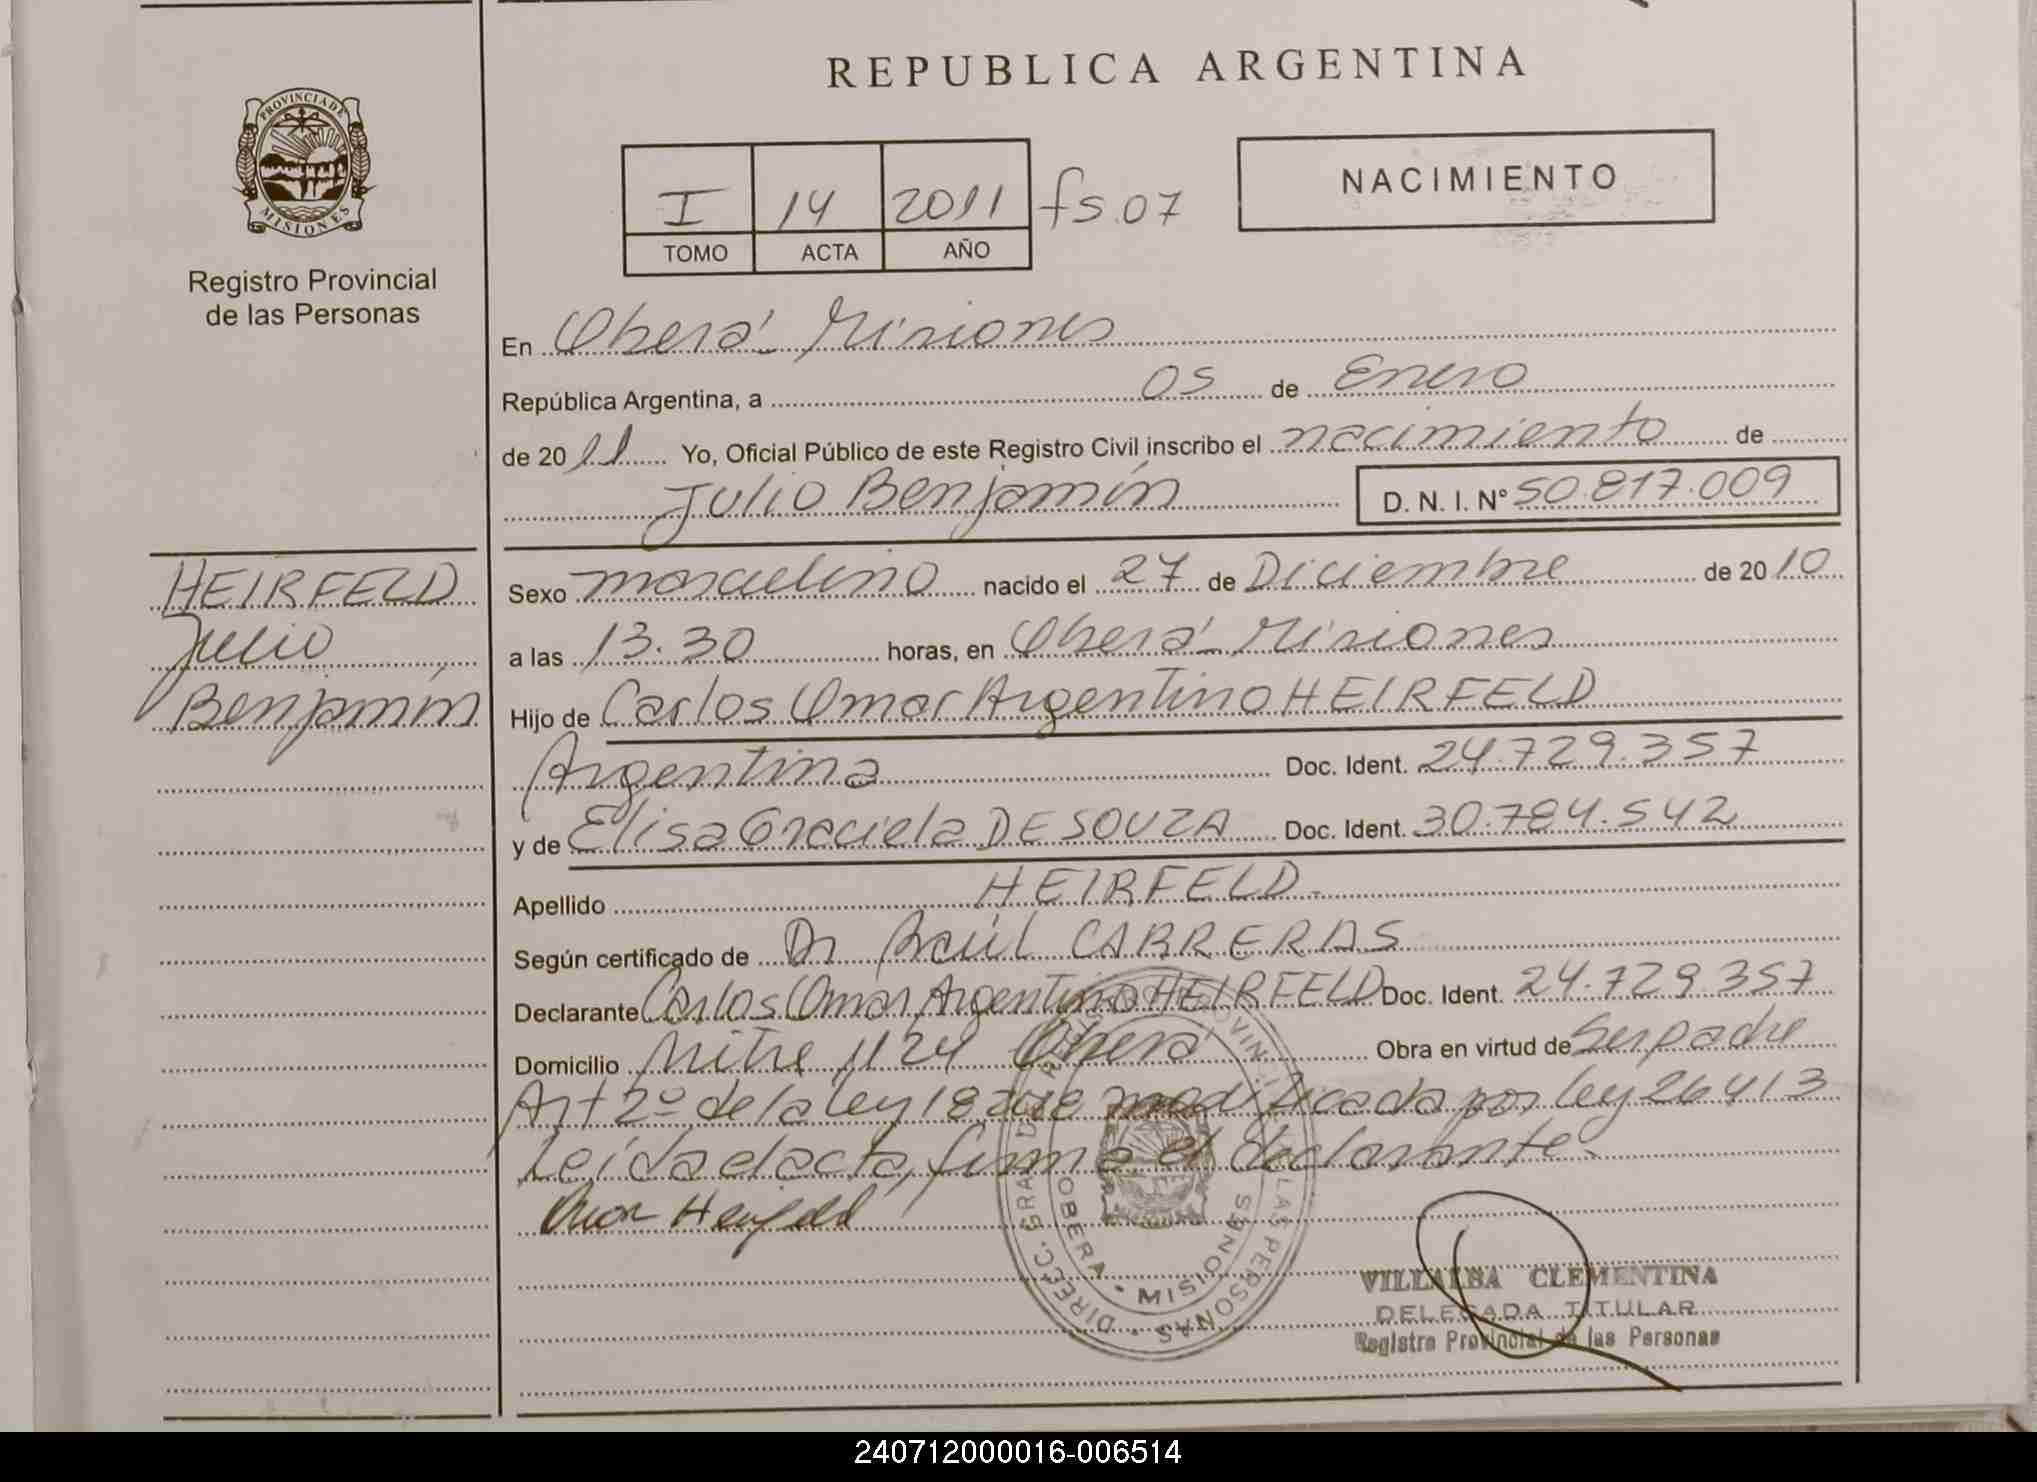 REPUBLICA ARGENTINA
PROVINCIA DE
MISIONES
Registro Provincial
de las Personas
I 14 2011 fs.07
TOMO ACTA AÑO
NACIMIENTO
En Oberá Misiones
República Argentina, a 05 de Enero
de 2011 Yo, Oficial Público de este Registro Civil inscribo el nacimiento de
Julio Benjamín D. N. I. N° 50.817.009
HEIRFELD
Julio
Benjamín
Sexo masculino nacido el 27 de Diciembre de 2010
a las 13.30 horas, en Oberá Misiones
Hijo de Carlos Omar Argentino HEIRFELD
Argentina Doc. Ident. 24.729.357
y de Elisa Graciela DE SOUZA Doc. Ident. 30.784.542
Apellido HEIRFELD.
Según certificado de Dr Raúl CARRERAS
Declarante Carlos Omar Argentino HEIRFELD Doc. Ident. 24.729.357
Domicilio Mitre 1124 Oberá Obra en virtud de Ser padre
Art 2º de la ley 18248 modificada por ley 26413
Leída el acta, firma el declarante.
Omar Heirfeld
OBERA • MISIONES
VILLALBA CLEMENTINA
DELEGADA TITULAR
Registro Provincial de las Personas
240712000016-006514